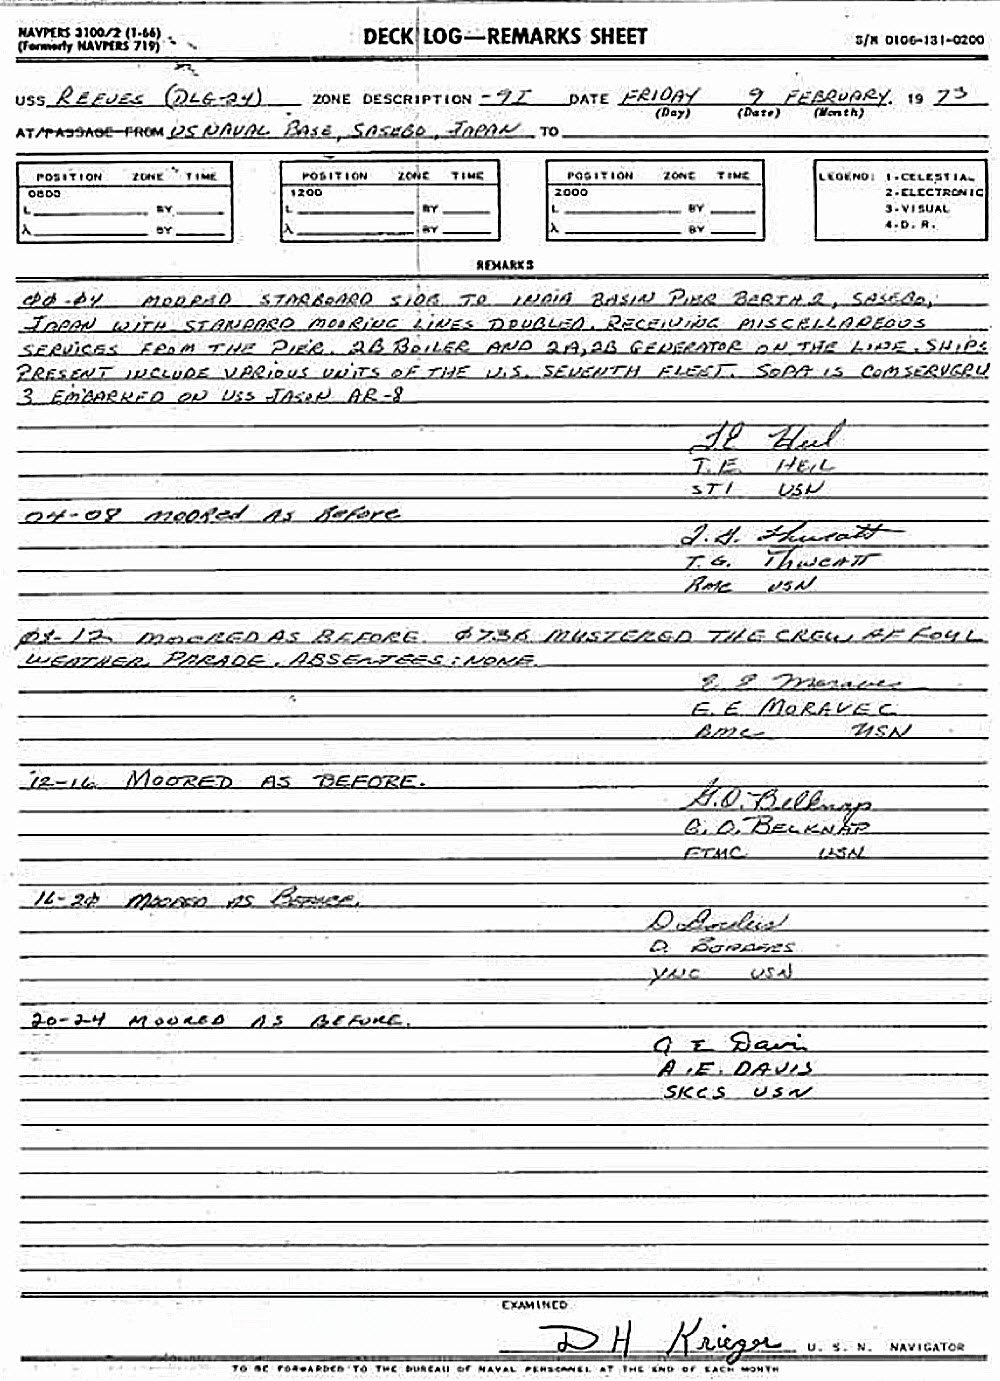 NAVPERS 3100/2 (1-66)
(Formerly NAVPERS 719)
DECK LOG—REMARKS SHEET
S/N 0106-131-0200
USS REEVES (DLG-24) ZONE DESCRIPTION -9I DATE FRIDAY 9 FEBRUARY 19 73
(Day) (Date) (Month)
AT/PASSAGE FROM US NAVAL BASE, SASEBO, JAPAN TO
POSITION ZONE TIME
0800
L BY
λ BY
POSITION ZONE TIME
1200
L BY
λ BY
POSITION ZONE TIME
2000
L BY
λ BY
LEGEND: 1-CELESTIAL
2-ELECTRONIC
3-VISUAL
4-D. R.
REMARKS
ØØ-Ø4 MOORED STARBOARD SIDE TO INDIA BASIN PIER BERTH 2, SASEBO,
JAPAN WITH STANDARD MOORING LINES DOUBLED. RECEIVING MISCELLANEOUS
SERVICES FROM THE PIER. 2B BOILER AND 2A, 2B GENERATOR ON THE LINE. SHIPS
PRESENT INCLUDE VARIOUS UNITS OF THE U.S. SEVENTH FLEET. SOPA IS COMSERVGRU
3 EMBARKED ON USS JASON AR-8
T E Heil
T. E. HEIL
ST1 USN
04-08 MOORED AS BEFORE
T. G. Thweatt
T. G. THWEATT
RMC USN
Ø8-12 MOORED AS BEFORE. Ø73Ø MUSTERED THE CREW AT FOUL
WEATHER PARADE. ABSENTEES: NONE.
E E Moravec
E. E MORAVEC
BMC USN
12-16 MOORED AS BEFORE.
G. D. Belknap
G. D. BELKNAP
FTMC USN
16-2Ø MOORED AS BEFORE.
D Borders
D. BORDERS
YNC USN
20-24 MOORED AS BEFORE.
A E Davis
A. E. DAVIS
SKCS USN
EXAMINED
D H Krieger U. S. N. NAVIGATOR
TO BE FORWARDED TO THE BUREAU OF NAVAL PERSONNEL AT THE END OF EACH MONTH